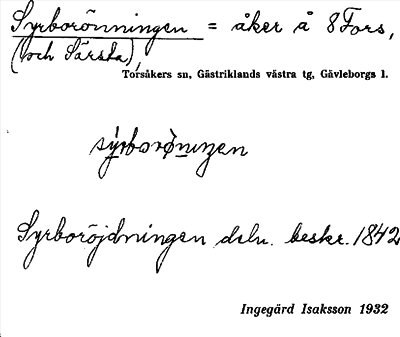 Syrborönningen = åker å 8 Fors,
(och Särsta),
Torsåkers sn, Gästriklands västra tg, Gävleborgs l.
Syrboröjdningen dsln. beskr. 1842
Ingegärd Isaksson 1932